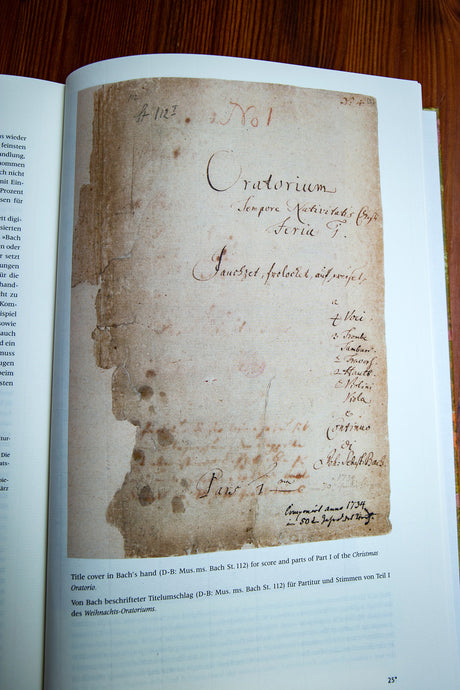 as wieder
feinsten
andlung,
nommen
ch nicht
mit Ein-
Prozent
sen für
tt digi-
sierten
»Bach
oder
r setzt
ungen
für die
hand-
cht zu
Kom-
ispiel
sowie
auch
d ein
muss
ugen
beim
nsten
tur-
Die
ats-
ärz
A 112 I
No 1
Oratorium
Tempore Nativitatis
Feria I.
Jauchzet, frolocket, auf, preiset,
a
4 Voci.
3 Trombe
Tamburi
2 Travers.
2 Hautb.
2 Violini
Viola
e
Continuo
di
Joh: Sebast: Bach.
Pars 1
Componirt anno 1734
in 50
Title cover in Bach's hand (D-B: Mus. ms. Bach St. 112) for score and parts of Part I of the Christmas
Oratorio.
Von Bach beschrifteter Titelumschlag (D-B: Mus. ms. Bach St. 112) für Partitur und Stimmen von Teil I
des Weihnachts-Oratoriums.
25*